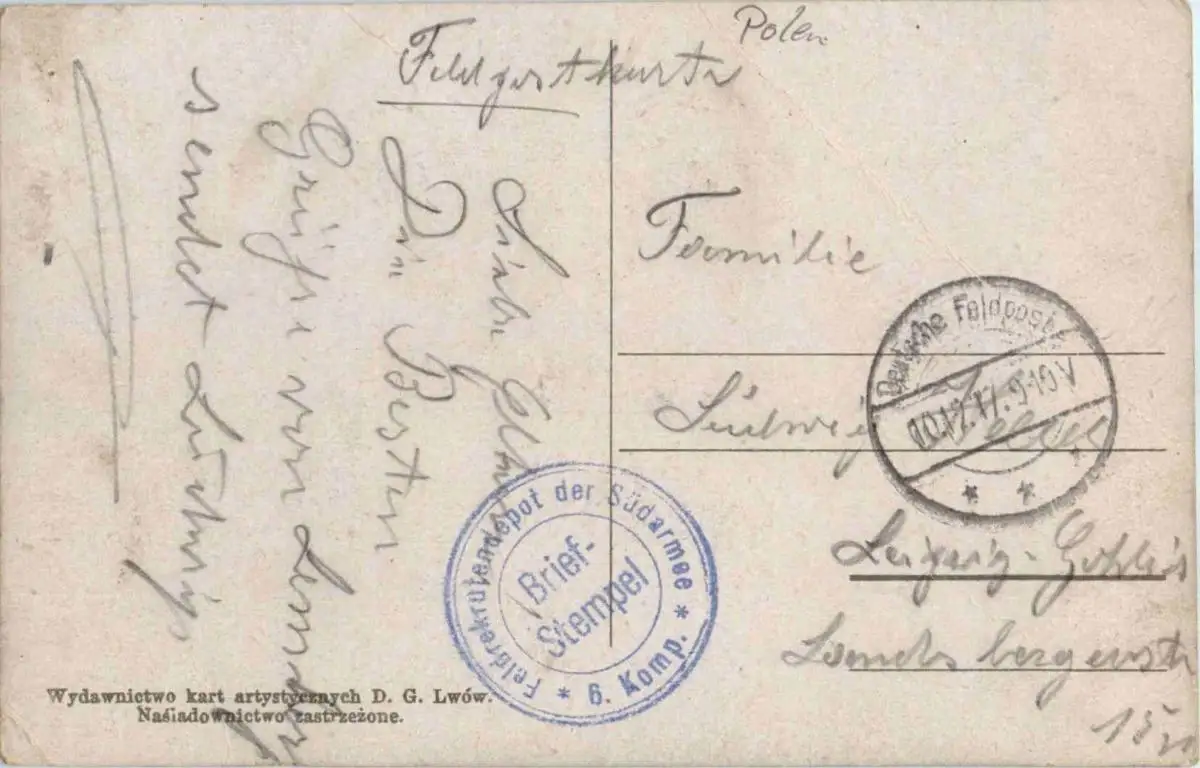 Polen
Feldpostkarte
Liebe Eltern
Die Besten
Grüße von Lemberg
sendet Ludwig
Familie
Ludwig
Leipzig-Gohlis
Landsbergerstr
15
Deutsche Feldpost
10.12.17. 9-10 V
Feldrekrutendepot der Südarmee
* 6. Komp. *
Brief-
Stempel
Wydawnictwo kart artystycznych D. G. Lwów.
Naśladownictwo zastrzeżone.